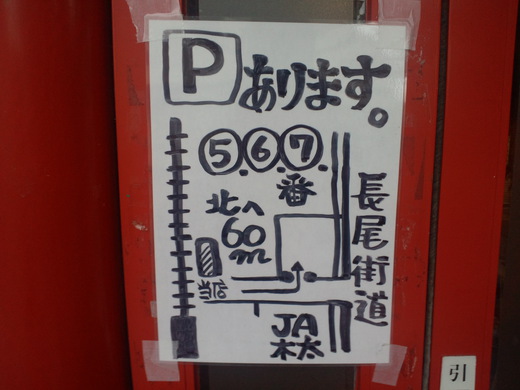 P
あります。
⑤.⑥.⑦.
番
北へ
60
m
長尾街道
当店
JA
林
引